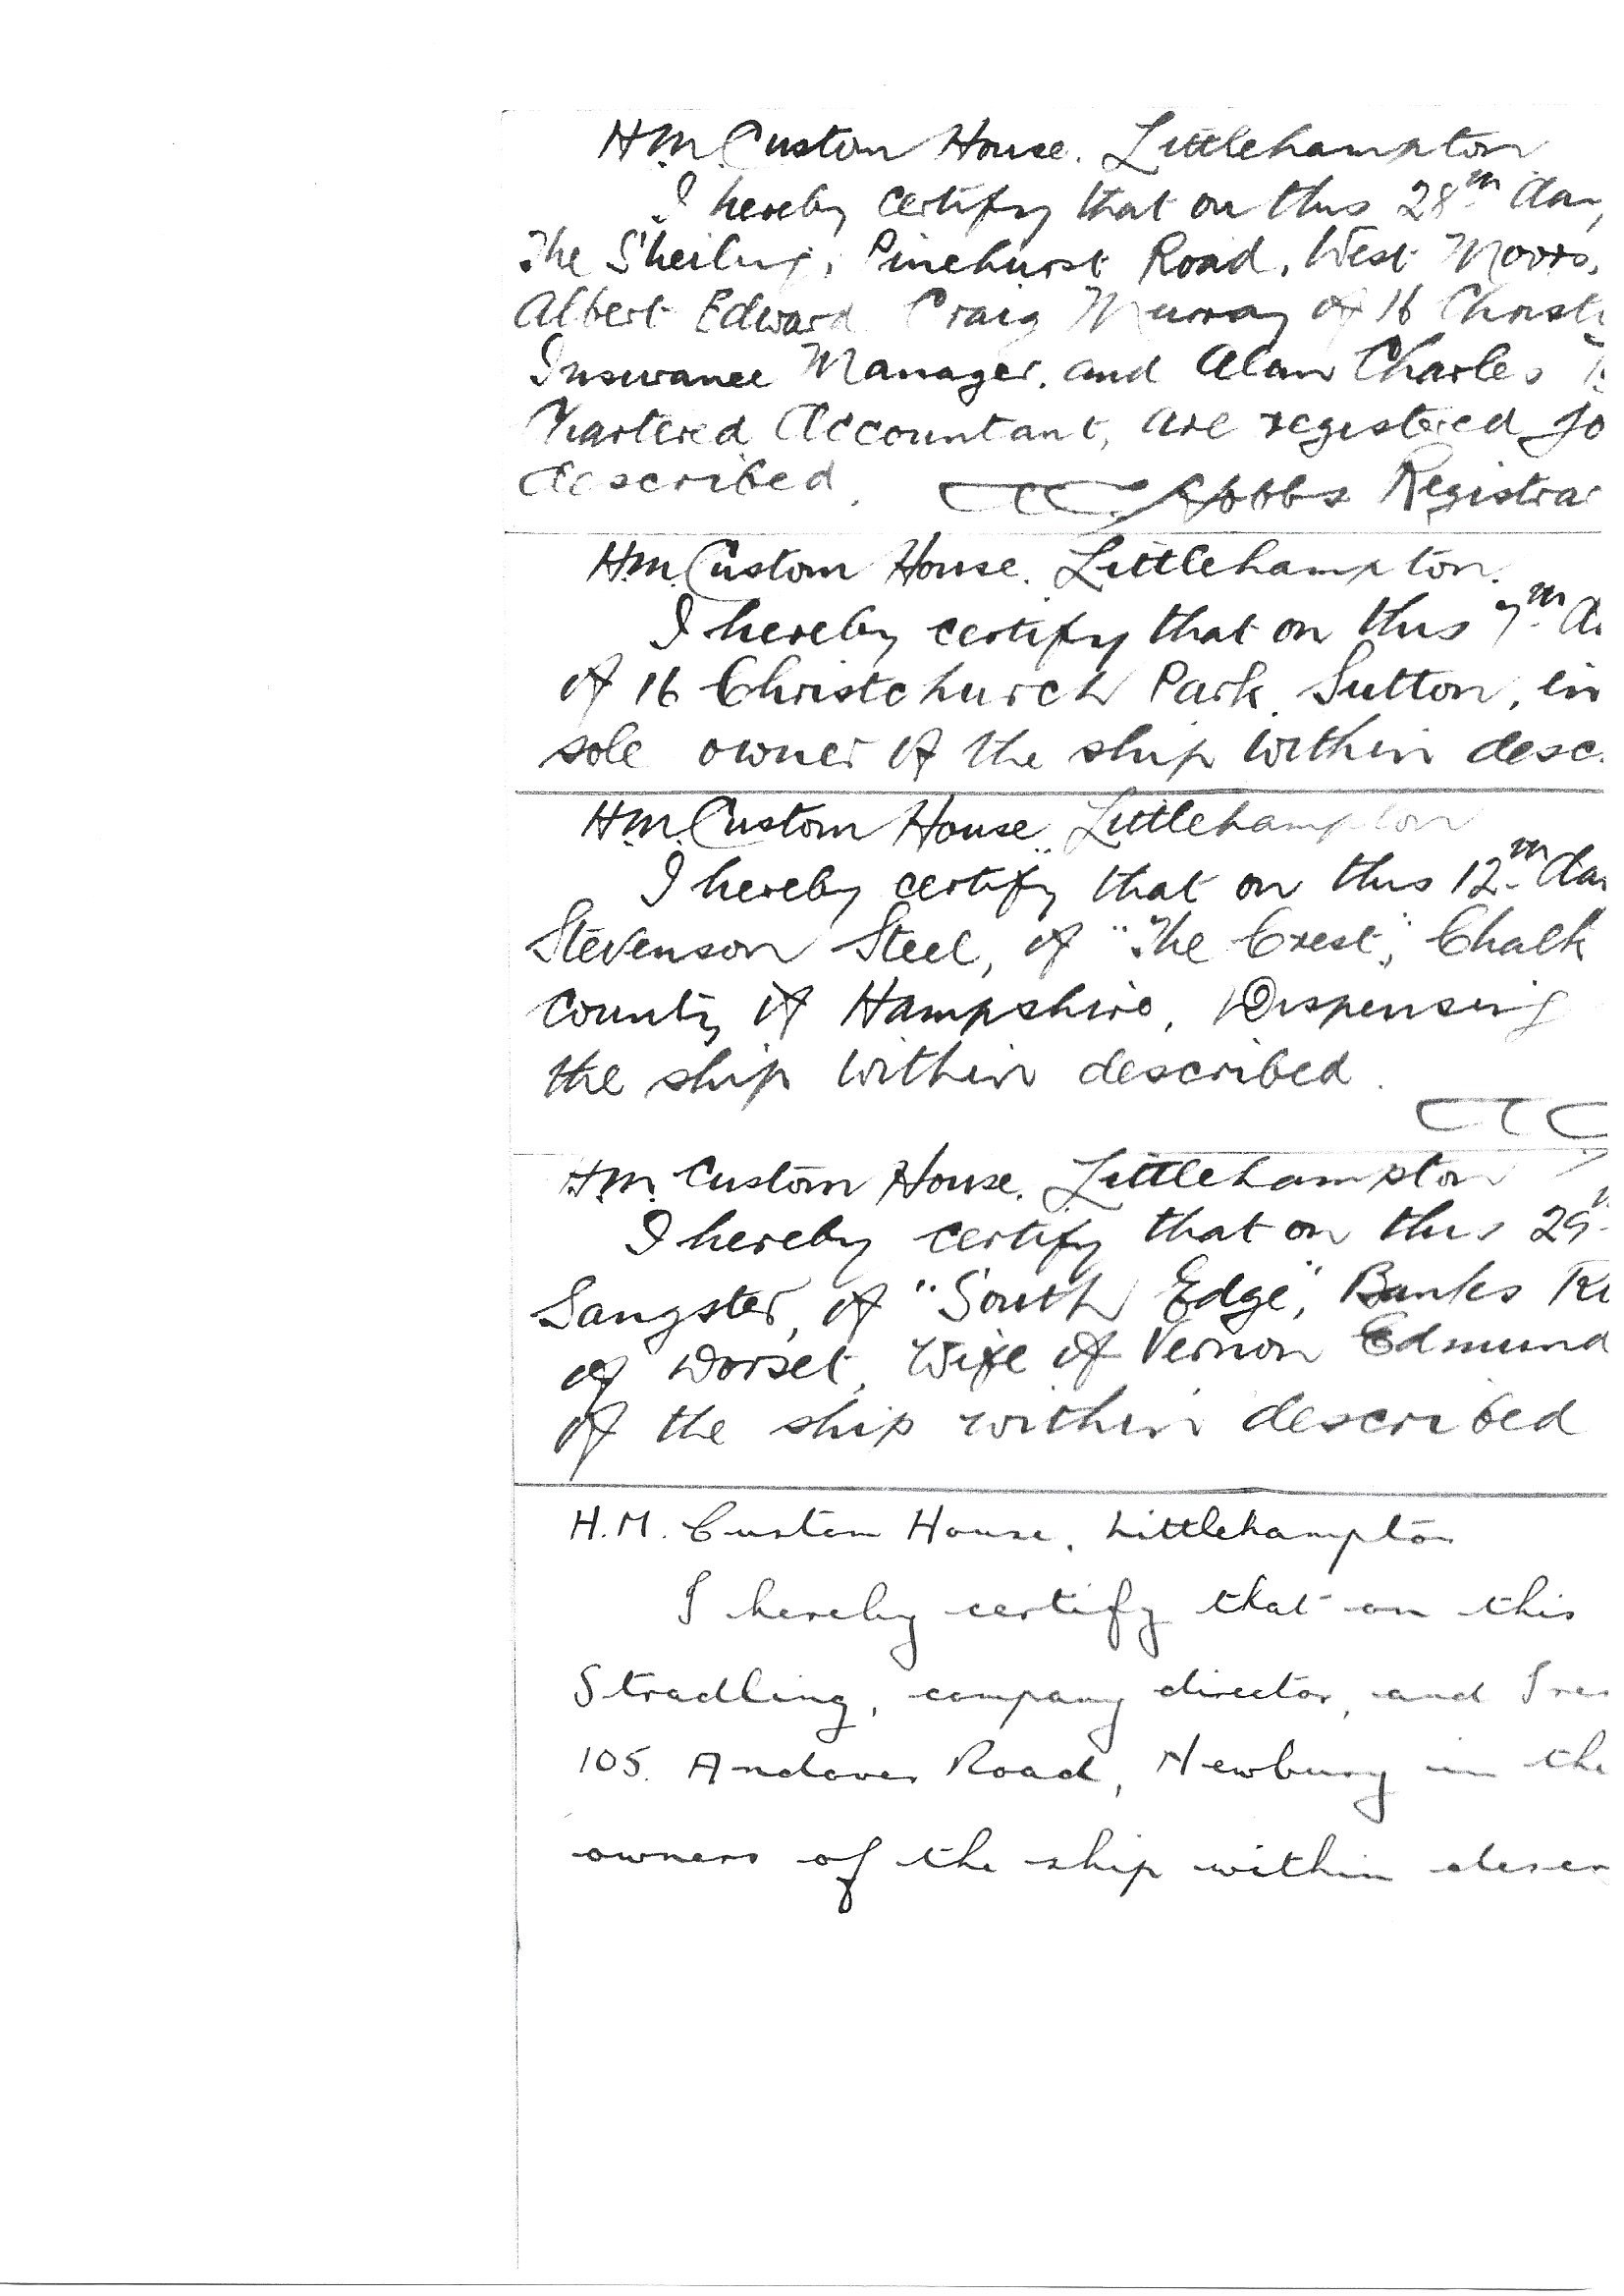 H.M. Custom House. Littlehampton
I hereby certify that on this 28th day
The Sheiling, Pinehurst Road, West Moors,
Albert Edward Craig Murray of 16 Christ
Insurance Manager, and Alan Charles
Chartered Accountant, are registered jo
described. Registrar
H.M. Custom House. Littlehampton.
I hereby certify that on this 7th da
of 16 Christchurch Park, Sutton, in
sole owner of the ship within desc
H.M. Custom House. Littlehampton
I hereby certify that on this 12th day
Stevenson Steel, of "The Crest", Chalk
County of Hampshire, Dispensing
the ship within described.
H.M. Custom House. Littlehampton
I hereby certify that on this 29
Sangster, of "South Edge", Banks R
of Dorset, Wife of Vernon Edmund
of the ship within described
H.M. Custom House, Littlehampton
I hereby certify that on this
Stradling, company director, and
105. Andover Road, Newbury in the
owners of the ship within descr